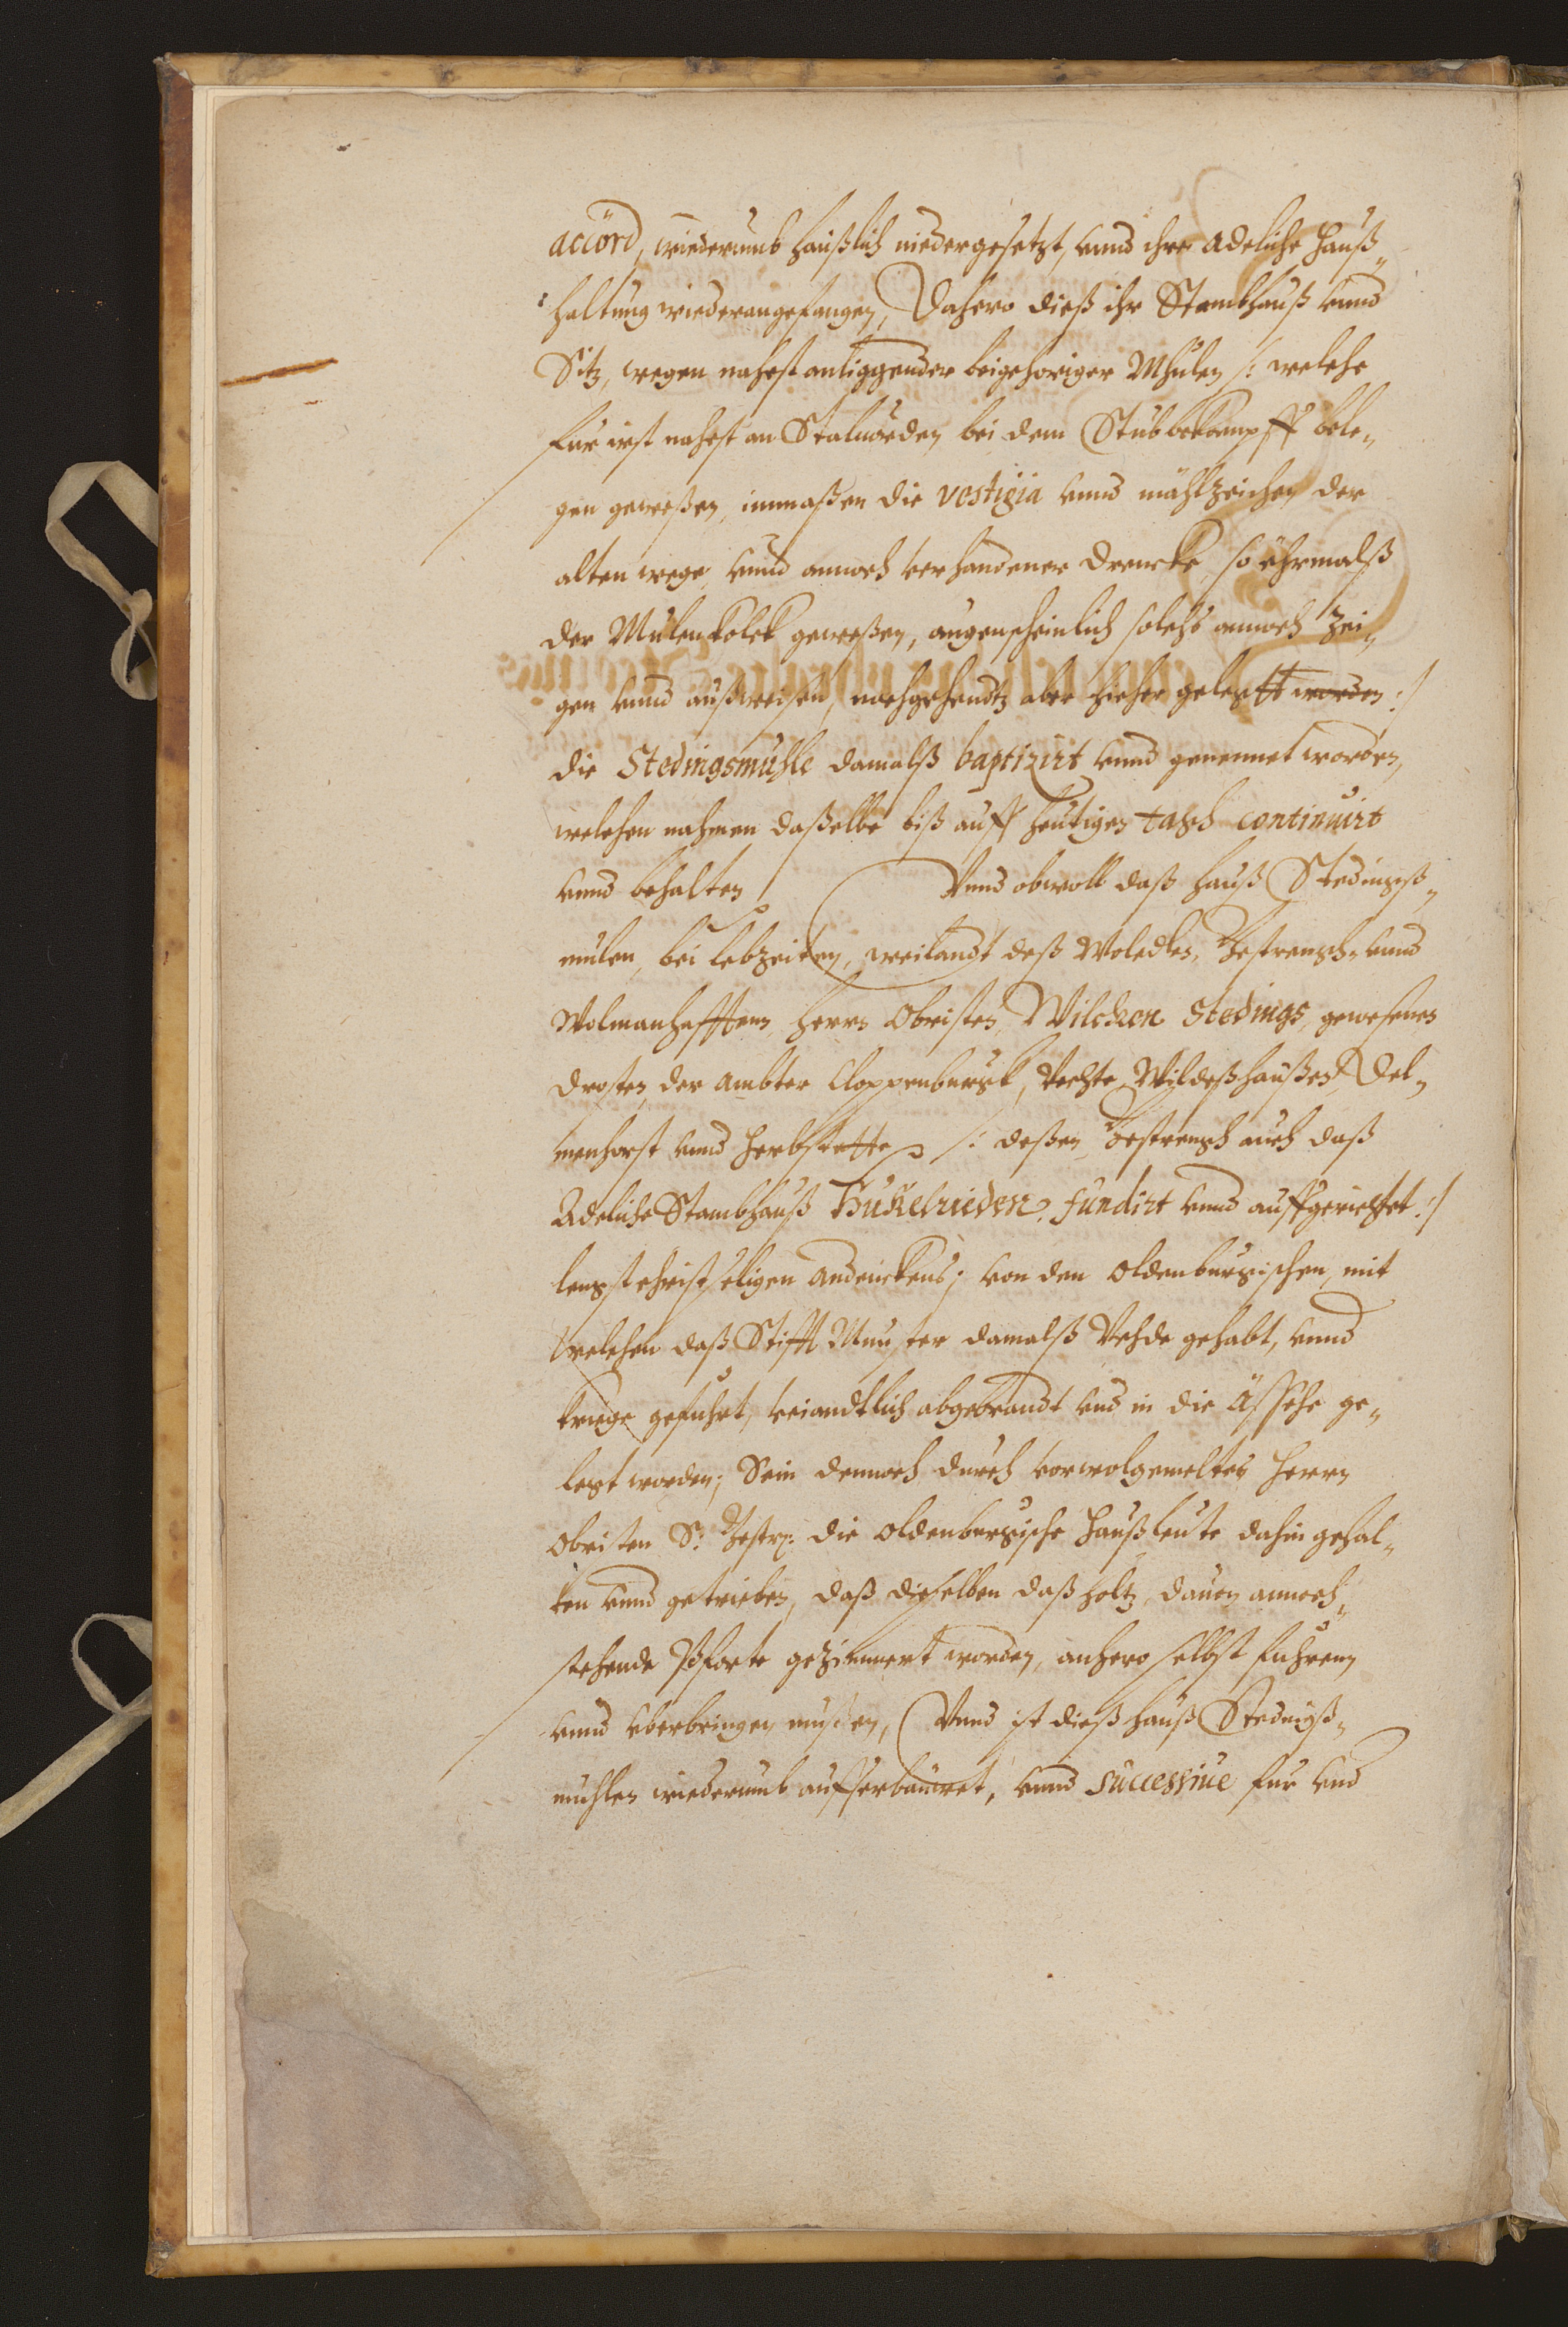 accord, wiederumb haußlich niedergesetzt, vnnd ihre Adeliche Hauß„
haltung wiederangefangen, Dahero dieß ihr Stambhauß vnnd
Sitz, wegen nahest anliggender beigehoriger Mhulen /: welche
fur irst nahest an Stalworden bei dem Stubbekampff bele„
gen geweßen, inmaßen die vestigia vnnd mählzeichen der
alten wege, vnnd annoch verhandener Drencke, so ehrmalß
der Mulenkolck geweßen, augenscheinlich solchs annoch zei„
gen vnnd außweisen, nachgehendtz aber hieher gelegtt worden :/
die Stedingsmühle damalß baptizirt vnnd genennet worden,
welchen nahmen daßelbe biß auff heutigen tagh continuirt
vnnd behalten Vnnd obwoll daß Hauß Stedingß„
mulen, bei lebzeiten, weilandt deß Woledlen, Gestrengh- vnnd
Wolmanhafften, Herrn Obristen, Wilcken Stedings, gewesenen
Drosten, der Ambter Cloppenburgk, Vechte, Wildeßhaußen, Del„
menhorst vnnd Harpstette /: deßen Gestrengh auch daß
Adeliche Stambhauß Hukelrieden, fundirt vnnd auffgerichtet :/
lengst christseligen Andenckens; von den Oldenburgischen, mit
welchen daß Stifft Munster damalß Vehde gehabt, vnnd
kriege gefuhrt, veiandtlich abgebrandt vnd in die Ässche ge„
legt worden; Sein dennoch durch vorwolgemelten Herrn
Obristen S: Gestr: die Oldenburgische Haußleute dahin gehal„
ten vnnd getrieben, daß dieselben daß holtz, dauon annoch„
stehende Pforte gezimmert worden, anhero selbst fuhren
vnnd vberbringen mußen, Vnnd ist dieß Hauß Stedingß„
muhlen wiederumb aufferbauwet, vnnd successiue fur vnd